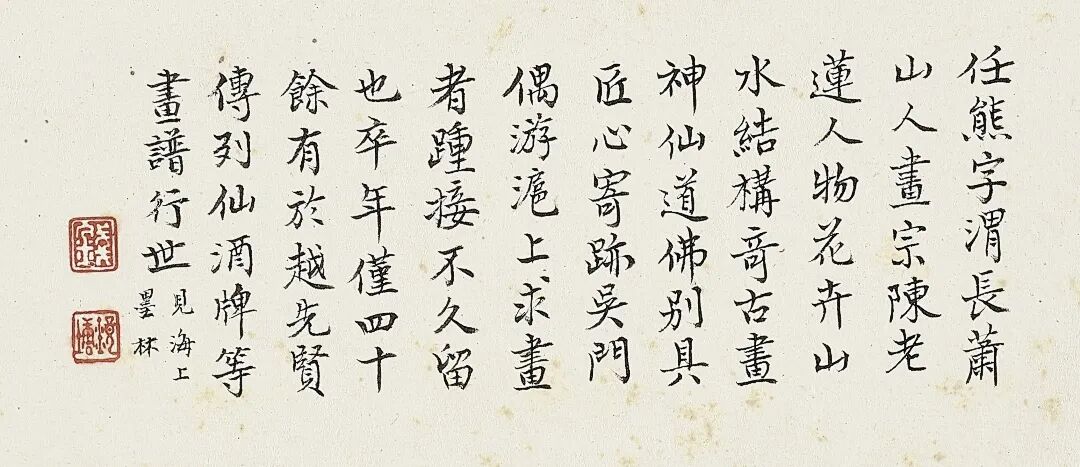 任熊字渭長蕭
山人畫宗陳老
蓮人物花卉山
水結構竒古畫
神仙道佛別具
匠心寄跡吳門
偶游滬上求畫
者踵接不久留
也卒年僅四十
餘有於越先賢
傳列仙酒牌等
畫譜行世
見海上
墨林